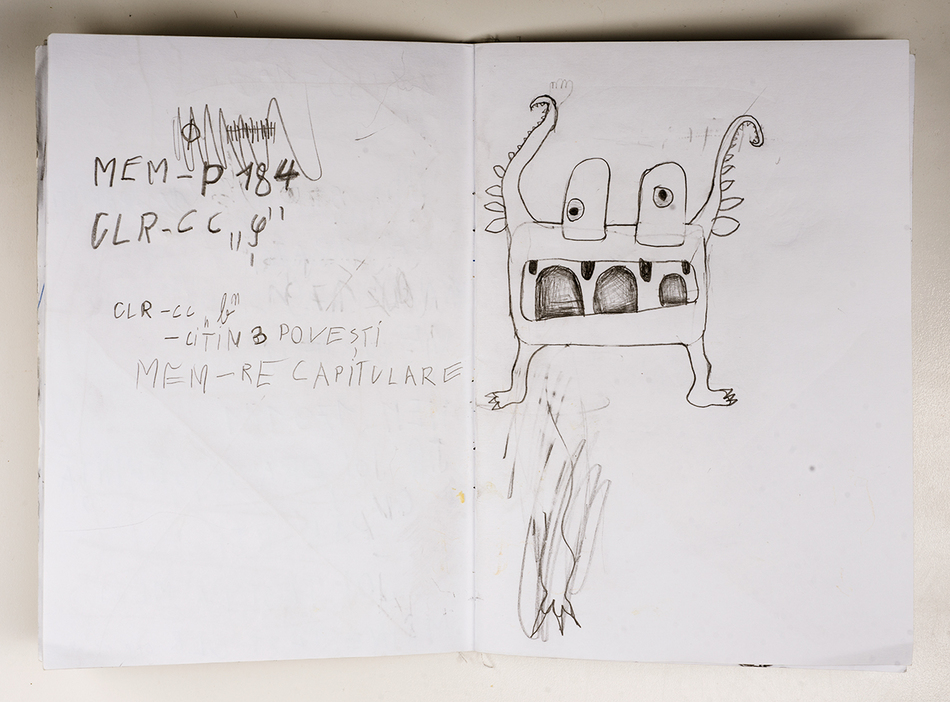 MEM-P 184
CLR-CC „φ"
CLR-CC „b"
-CITIN 3 POVEȘTI
MEM-RE CAPITULARE